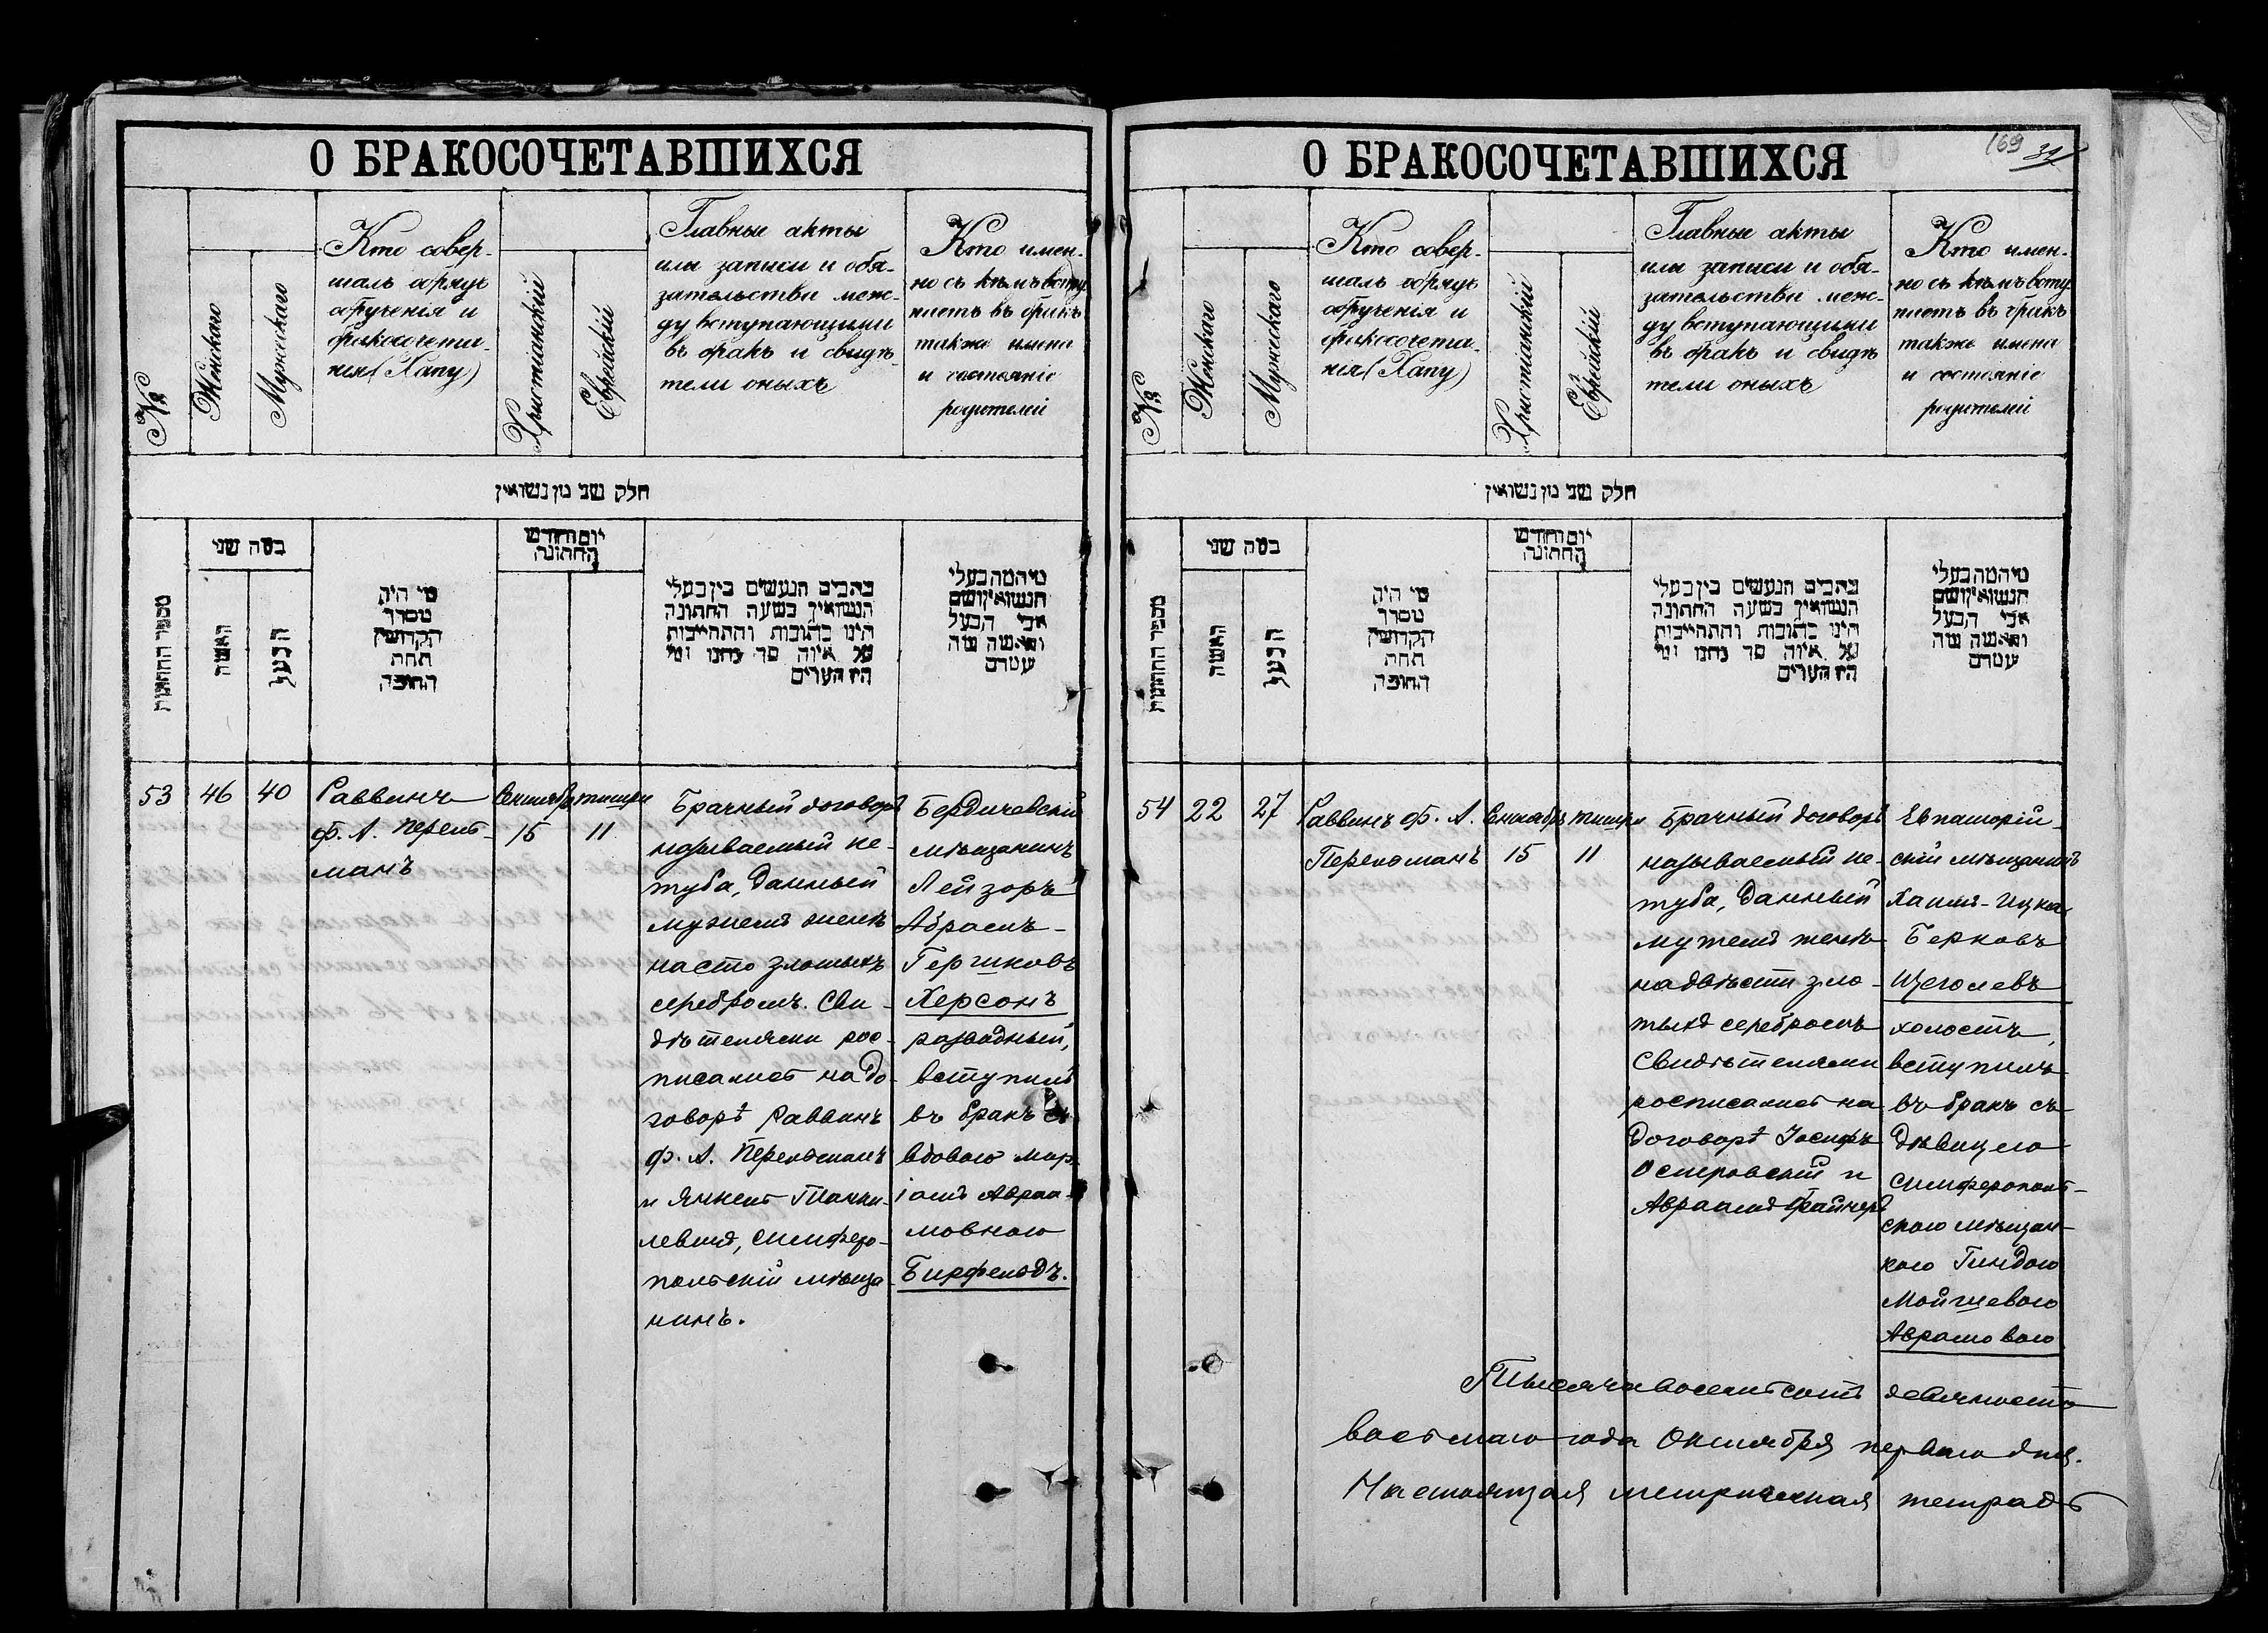 О БРАКОСОЧЕТАВШИХСЯ
№
Женскаго
Мужескаго
Кто совер-
шалъ обрядъ
обрученія и
бракосочета-
нія (Хапу)
Христіанскій
Еврейскій
Главные акты
или записи и обя-
зательства меж-
ду вступающими
въ бракъ и свидѣ-
тели оныхъ
Кто имен-
но съ кѣмъ всту-
паетъ въ бракъ
также имена
и состояніе
родителей
חלק שני מן נשואין
מספר החתונות
במה שני
האשה
הבעל
מי היה
מסדר
הקדושין
תחת
החופה
יום וחודש
החתונה
כתבים הנעשים בין בעלי
הנשואין בשעה החתונה
היינו כתובות והתחייבות
על איזה סך נתנו ומי
היו העדים
מי המה בעלי
הנשואין ושם
אבי הבעל
והאשה
53
46
40
Раввинъ
Ф. А. Перель-
манъ
Сентябр
15
тишри
11
Брачный договоръ
называемый ке-
туба, данный
мужемъ женѣ
на сто злотыхъ
серебромъ. Сви-
дѣтелями рос-
писались на до-
говорѣ Раввинъ
Ф. А. Перельманъ
и Янкель
левичъ, симферо-
польскій мѣща-
нинъ.
Бердичевскій
мѣщанинъ
Лейзоръ
Абрамъ-
Гершковъ
Херсонъ
разводный,
вступилъ
въ бракъ съ
вдовою Мар-
іамъ Авраа-
мовною
Бирфельдъ.
О БРАКОСОЧЕТАВШИХСЯ
169
№
Женскаго
Мужескаго
Кто совер-
шалъ обрядъ
обрученія и
бракосочета-
нія (Хапу)
Христіанскій
Еврейскій
Главные акты
или записи и обя-
зательства меж-
ду вступающими
въ бракъ и свидѣ
тели оныхъ
Кто имен-
но съ кѣмъ всту
паетъ въ бракъ
также имена
и состояніе
родителей
חלק שני מן נשואין
מספר החתונות
במה שני
האשה
הבעל
מי היה
מסדר
הקדושין
תחת
החופה
יום וחודש
החתונה
כתבים הנעשים בין בעלי
הנשואין בשעה החתונה
היינו כתובות והתחייבות
על איזה סך נתנו ומי
היו העדים
מי המה בעלי
הנשואין ושם
אבי הבעל
והאשה
54
22
27
Раввинъ Ф. А.
Перельманъ
Сентябр
15
тишри
11
Брачный договоръ
называемый ке-
туба, данный
мужемъ женѣ
на двѣсти зло-
тыхъ серебромъ
Свидѣтелями
росписались на
договорѣ Іосифъ
Островскій и
Авраамъ Файнерѣ
Евпаторій-
скій мѣщанинъ
Хаимъ-Ицка
Берковъ
Щеголевъ
холостъ,
вступилъ
въ бракъ съ
дѣвицею
симферополь-
скою мѣщан-
кою Гиндою
Мойшевою
Аврамовою
Тысяча восемьсотъ девяносто
восьмаго года Октября перваго дня.
Настоящая метрическая тетрадь